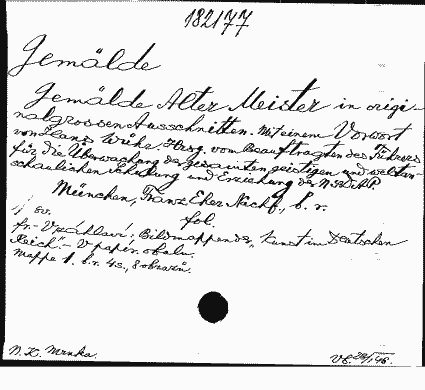 182177
Gemälde
Gemälde Alter Meister in origi-
nalgrossen Ausschnitten. Mit einem Vorwort
von Hrsg. vom Beauftragten des Führers
für die Überwachung der gesamten geistigen und weltan-
schaulichen Schulung und Erziehung der N.S.D.A.P.
München, Franz Eher Nachf., b. r.
fol.
1 sv.
fr.- V záhlaví: Bildmappen der "Kunst im Deutschen
Reich".- V papír. obalu.
Mappe 1. b.r. 4 s., 8 obrazů.
N.K. Mrnka.